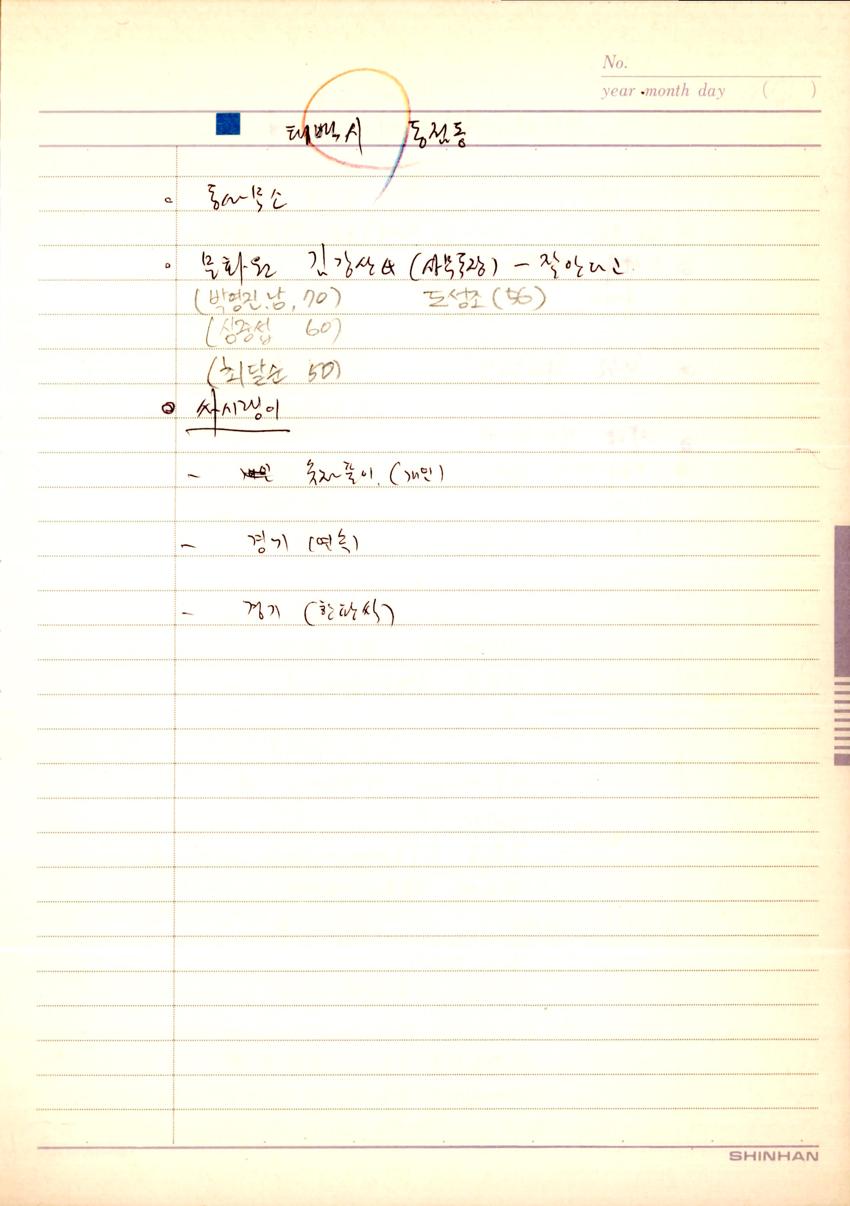 No.
year month day ( )
태백시 동점동
동사무소
문화원 김강산 씨 (사무국장) - 잘 안다고
(박영진, 남, 70) 도성조 (56)
(심중섭 60)
(최달순 50)
싸시랭이
- 숫자풀이. (개인)
- 경기 (연속)
- 경기 (한판씩)
SHINHAN